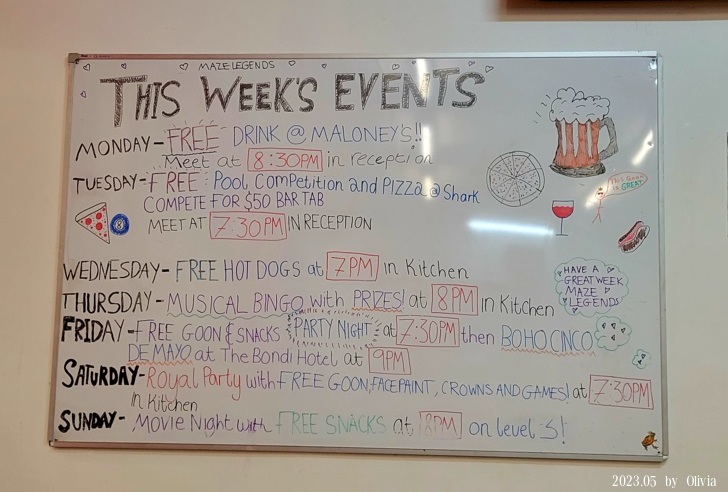 MAZE LEGENDS
THIS WEEK'S EVENTS
MONDAY - FREE DRINK @ MALONEY'S!!
Meet at 8:30PM in reception
TUESDAY - FREE: Pool Competition and PIZZA @ Shark
COMPETE FOR $50 BAR TAB
MEET AT 7:30PM IN RECEPTION
WEDNESDAY - FREE HOT DOGS at 7PM in Kitchen
HAVE A
GREAT WEEK
MAZE
LEGENDS
THURSDAY - MUSICAL BINGO with PRIZES! at 8PM in Kitchen
FRIDAY - FREE GOON & SNACKS PARTY NIGHT at 7:30PM then BOHO CINCO
DE MAYO at The Bondi Hotel at 9PM
SATURDAY - Royal Party with FREE GOON, FACEPAINT, CROWNS AND GAMES! at 7:30PM
in Kitchen
SUNDAY - Movie Night with FREE SNACKS at 8PM on level 3!
2023.05 by Olivia